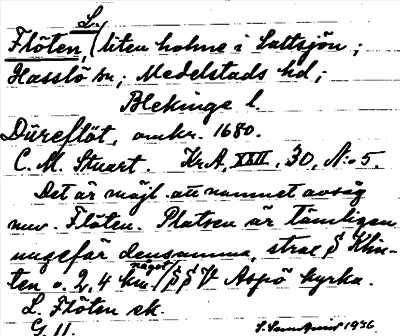 L.
Flöten, (liten holme i Saltsjön;
Hasslö sn; Medelstads hd;
Blekinge l.
Düreflöt, omkr. 1680.
C. M. Stuart. Kr.A. XXII, 30, N:o 5.
Det är möjl. att namnet avsåg
nuv. Flöten. Platsen är tämligen
ungefär densamma, strax S Klin-
ten o. 2,4 km. något S S V Aspö kyrka.
L. Flöten ek.
G U.
1936